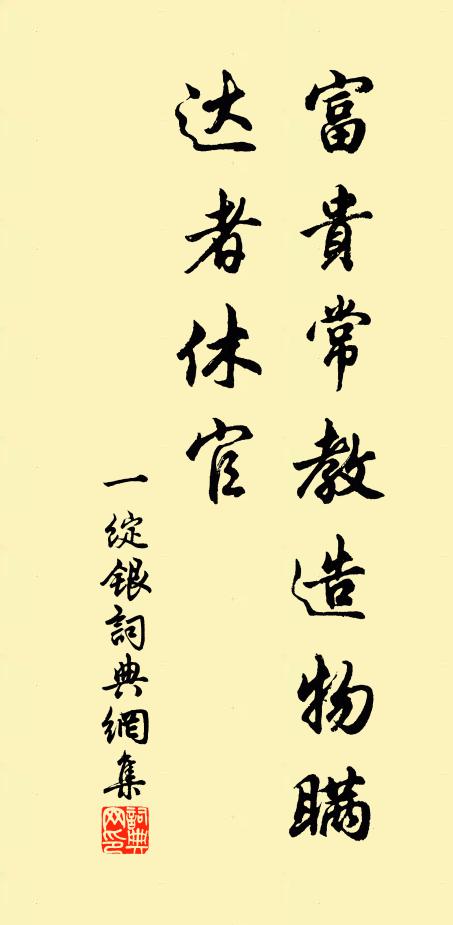 富貴常教造物瞞
达者休官
一綻銀詞典網集
詞典
网印